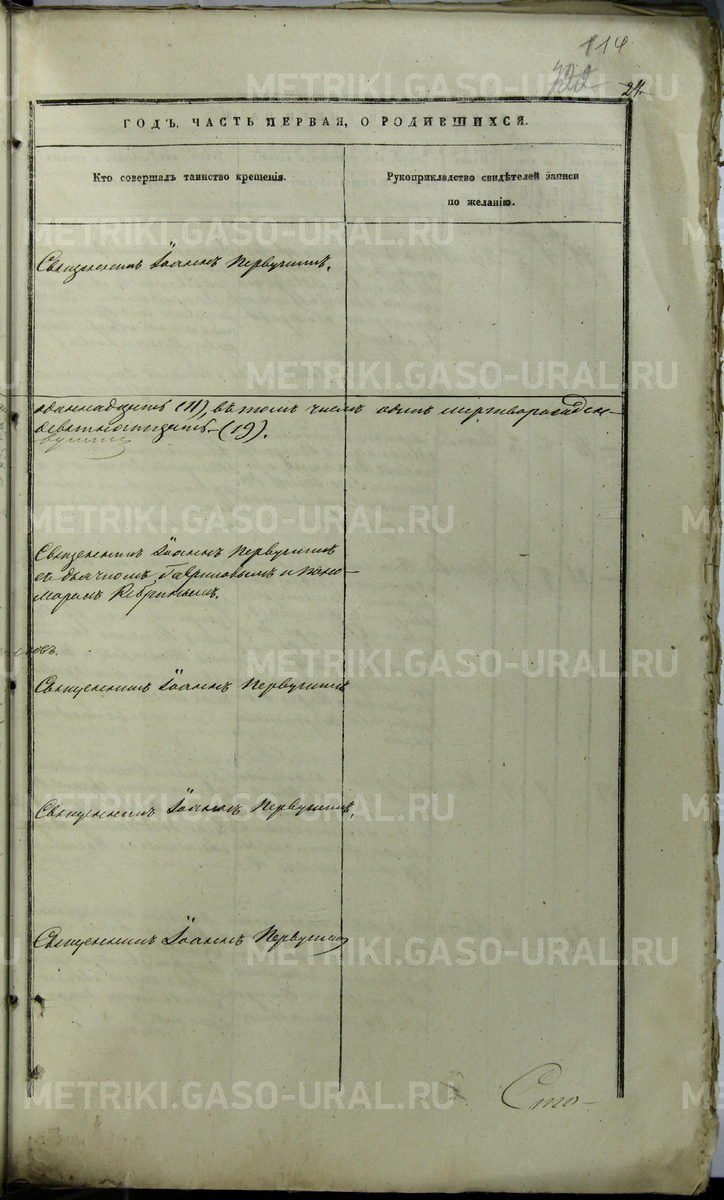 114
24.
ГОДЪ, ЧАСТЬ ПЕРВАЯ, О РОДИВШИХСЯ.
Кто совершалъ таинство крещенія.
Рукоприкладство свидѣтелей записи
по желанію.
Священникъ Іоаннъ Первушинъ.
одиннадцать (11), въ томъ числѣ одинъ мертворожден-
девятнадцать (19).
Священникъ Іоаннъ Первушинъ
съ дьячкомъ Гавриловымъ и поно-
маремъ
Священникъ Іоаннъ Первушинъ
Священникъ Іоаннъ Первушинъ.
Священникъ Іоаннъ Первушинъ
Сто-
METRIKI.GASO-URAL.RU